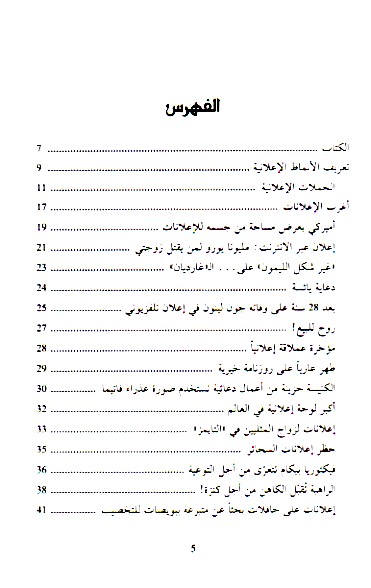 الفهرس
الكتاب ........ 7
تعريف الأنماط الإعلانية ........ 9
الحملات الإعلانية ........ 11
أغرب الإعلانات ........ 17
أميركي يعرض مساحة من جسمه للإعلانات ........ 19
إعلان عبر الانترنت: مليونا يورو لمن يقتل زوجتي ........ 21
«غير شكل الليمون» على... الـ«غارديان» ........ 23
دعاية يائسة ........ 24
بعد 28 سنة على وفاته جون لينون في إعلان تلفزيوني ........ 25
روح للبيع! ........ 27
مؤخرة عملاقة إعلانياً ........ 28
ظهر عارياً على روزنامة خيرية ........ 29
الكنيسة حزينة من أعمال دعائية تستخدم صورة عذراء فاتيما ........ 30
أكبر لوحة إعلانية في العالم ........ 32
إعلانات لزواج المثليين في «التايمز» ........ 33
حظر إعلانات السجائر ........ 35
فيكتوريا بيكام تتعرّى من أجل التوعية ........ 36
الراهبة تُقبّل الكاهن من أجل كنزة! ........ 38
إعلانات على حافلات بحثاً عن متبرعة ببويضات للتخصيب ........ 41
5